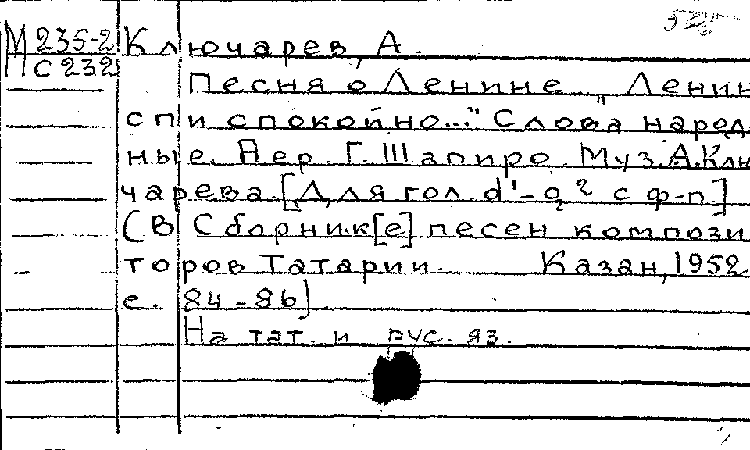 М 235-2 Ключарев, А.
С 232
Песня о Ленине „Ленин
спи спокойно..." Слова народ-
ные. Пер. Г. Шапиро. Муз. А. Клю
чарева. [Для гол. d¹-g² с ф-п]
(В Сборник[е] песен компози
торов Татарии. Казан, 1952
с. 84-86)
На тат. и рус. яз.